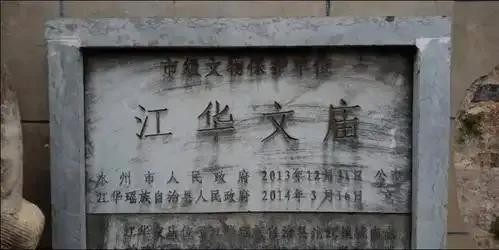 市级文物保护单位
江华文庙
永州市人民政府 2013年12月31日 公布
江华瑶族自治县人民政府 2014年3月16日 立
江华文庙位于江华瑶族自治县